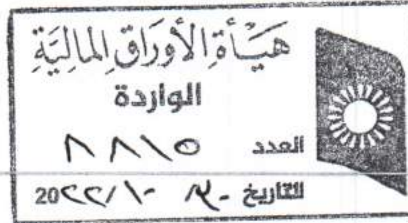 هَيـأة الأوراق المالية
الواردة
العدد ٨٨١٥
التاريخ / ١٠ / 20٢٢